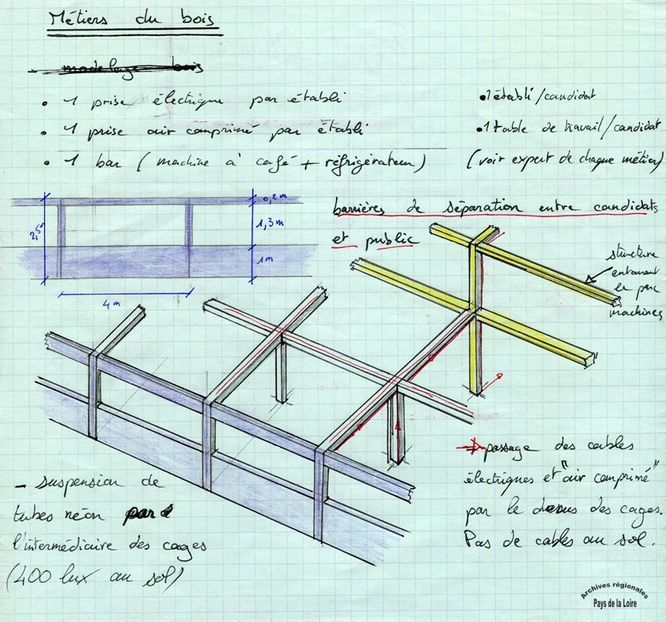 Métiers du bois
modelage bois
• 1 prise électrique par établi
• 1 prise air comprimé par établi
• 1 bar (machine à café + réfrigérateur)
• 1 établi/candidat
• 1 table de travail/candidat
(voir expert de chaque métier)
barrières de séparation entre candidats
et public
0,2m
1,3m
1m
4m
structure
entourant
le parc
machines
passage des cables
électriques et "air comprimé"
par le dessus des cages.
Pas de cables au sol.
- suspension de
tubes néon par
l'intermédiaire des cages
(400 lux au sol)
Archives régionales
Pays de la Loire